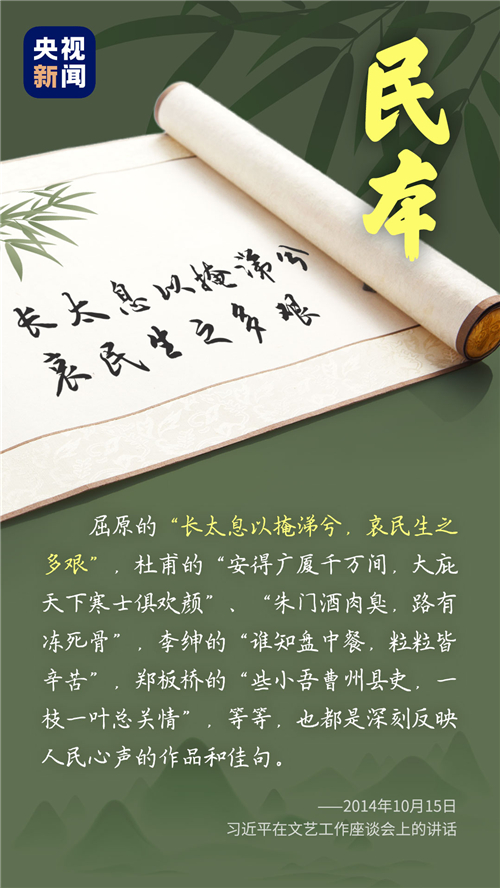 央视
新闻
民本
长太息以掩涕兮
哀民生之多艰
屈原的“长太息以掩涕兮，哀民生之
多艰”，杜甫的“安得广厦千万间，大庇
天下寒士俱欢颜”、“朱门酒肉臭，路有
冻死骨”，李绅的“谁知盘中餐，粒粒皆
辛苦”，郑板桥的“些小吾曹州县吏，一
枝一叶总关情”，等等，也都是深刻反映
人民心声的作品和佳句。
——2014年10月15日
习近平在文艺工作座谈会上的讲话